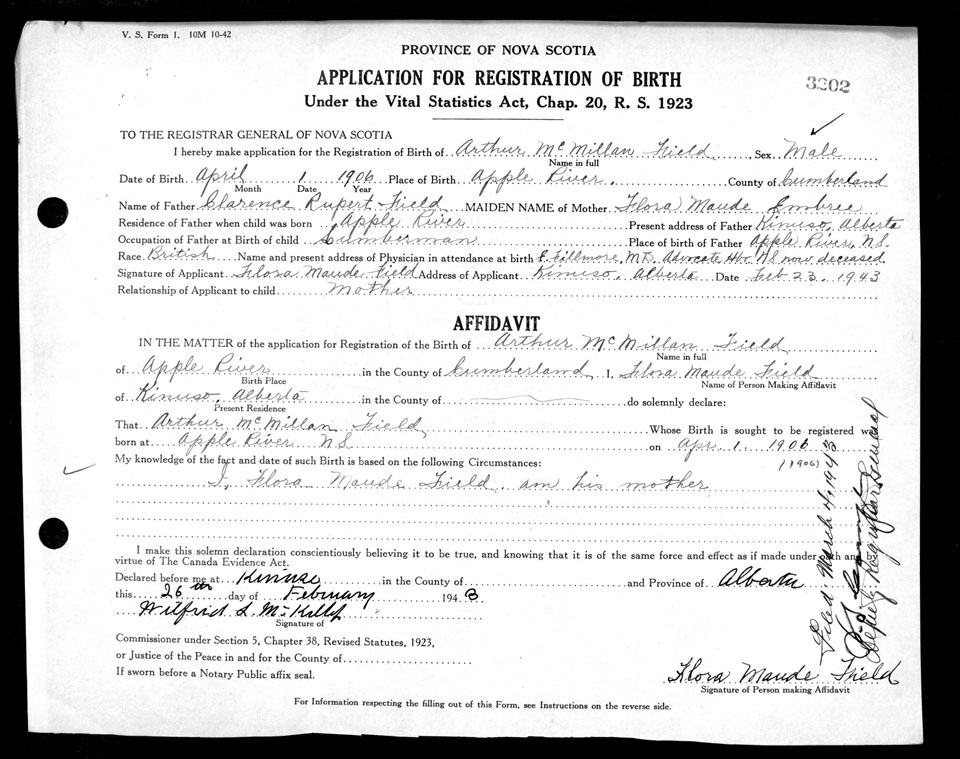 V. S. Form 1. 10M 10-42
PROVINCE OF NOVA SCOTIA
APPLICATION FOR REGISTRATION OF BIRTH
3202
Under the Vital Statistics Act, Chap. 20, R. S. 1923
TO THE REGISTRAR GENERAL OF NOVA SCOTIA
I hereby make application for the Registration of Birth of Arthur McMillan Field, Sex Male
Name in full
Date of Birth April 1 1906 Place of Birth Apple River, County of Cumberland
Month Date Year
Name of Father Clarence Rupert Field MAIDEN NAME of Mother Flora Maude Embree
Residence of Father when child was born Apple River Present address of Father Kinuso, Alberta
Occupation of Father at Birth of child Lumberman Place of birth of Father Apple River, N.S.
Race British Name and present address of Physician in attendance at birth E. Fillmore, M.D. Advocate Hbr. N.S. now deceased
Signature of Applicant Flora Maude Field Address of Applicant Kinuso, Alberta Date Feb 23, 1943
Relationship of Applicant to child Mother
AFFIDAVIT
IN THE MATTER of the application for Registration of the Birth of Arthur McMillan Field
Name in full
of Apple River in the County of Cumberland I, Flora Maude Field
Birth Place Name of Person Making Affidavit
of Kinuso, Alberta in the County of do solemnly declare:
Present Residence
That Arthur McMillan Field, Whose Birth is sought to be registered was
born at Apple River N.S. on Apr. 1, 1906
My knowledge of the fact and date of such Birth is based on the following Circumstances: (1906)
I, Flora Maude Field am his mother
I make this solemn declaration conscientiously believing it to be true, and knowing that it is of the same force and effect as if made under oath and
virtue of The Canada Evidence Act.
Declared before me at Kinuso in the County of and Province of Alberta
this 26th day of February 1943
Wilfrid L. McKillop
Signature of
Commissioner under Section 5, Chapter 38, Revised Statutes, 1923,
or Justice of the Peace in and for the County of
If sworn before a Notary Public affix seal.
Flora Maude Field
Signature of Person making Affidavit
For Information respecting the filling out of this Form, see Instructions on the reverse side.
Filed March 4, 1943
Deputy Registrar General